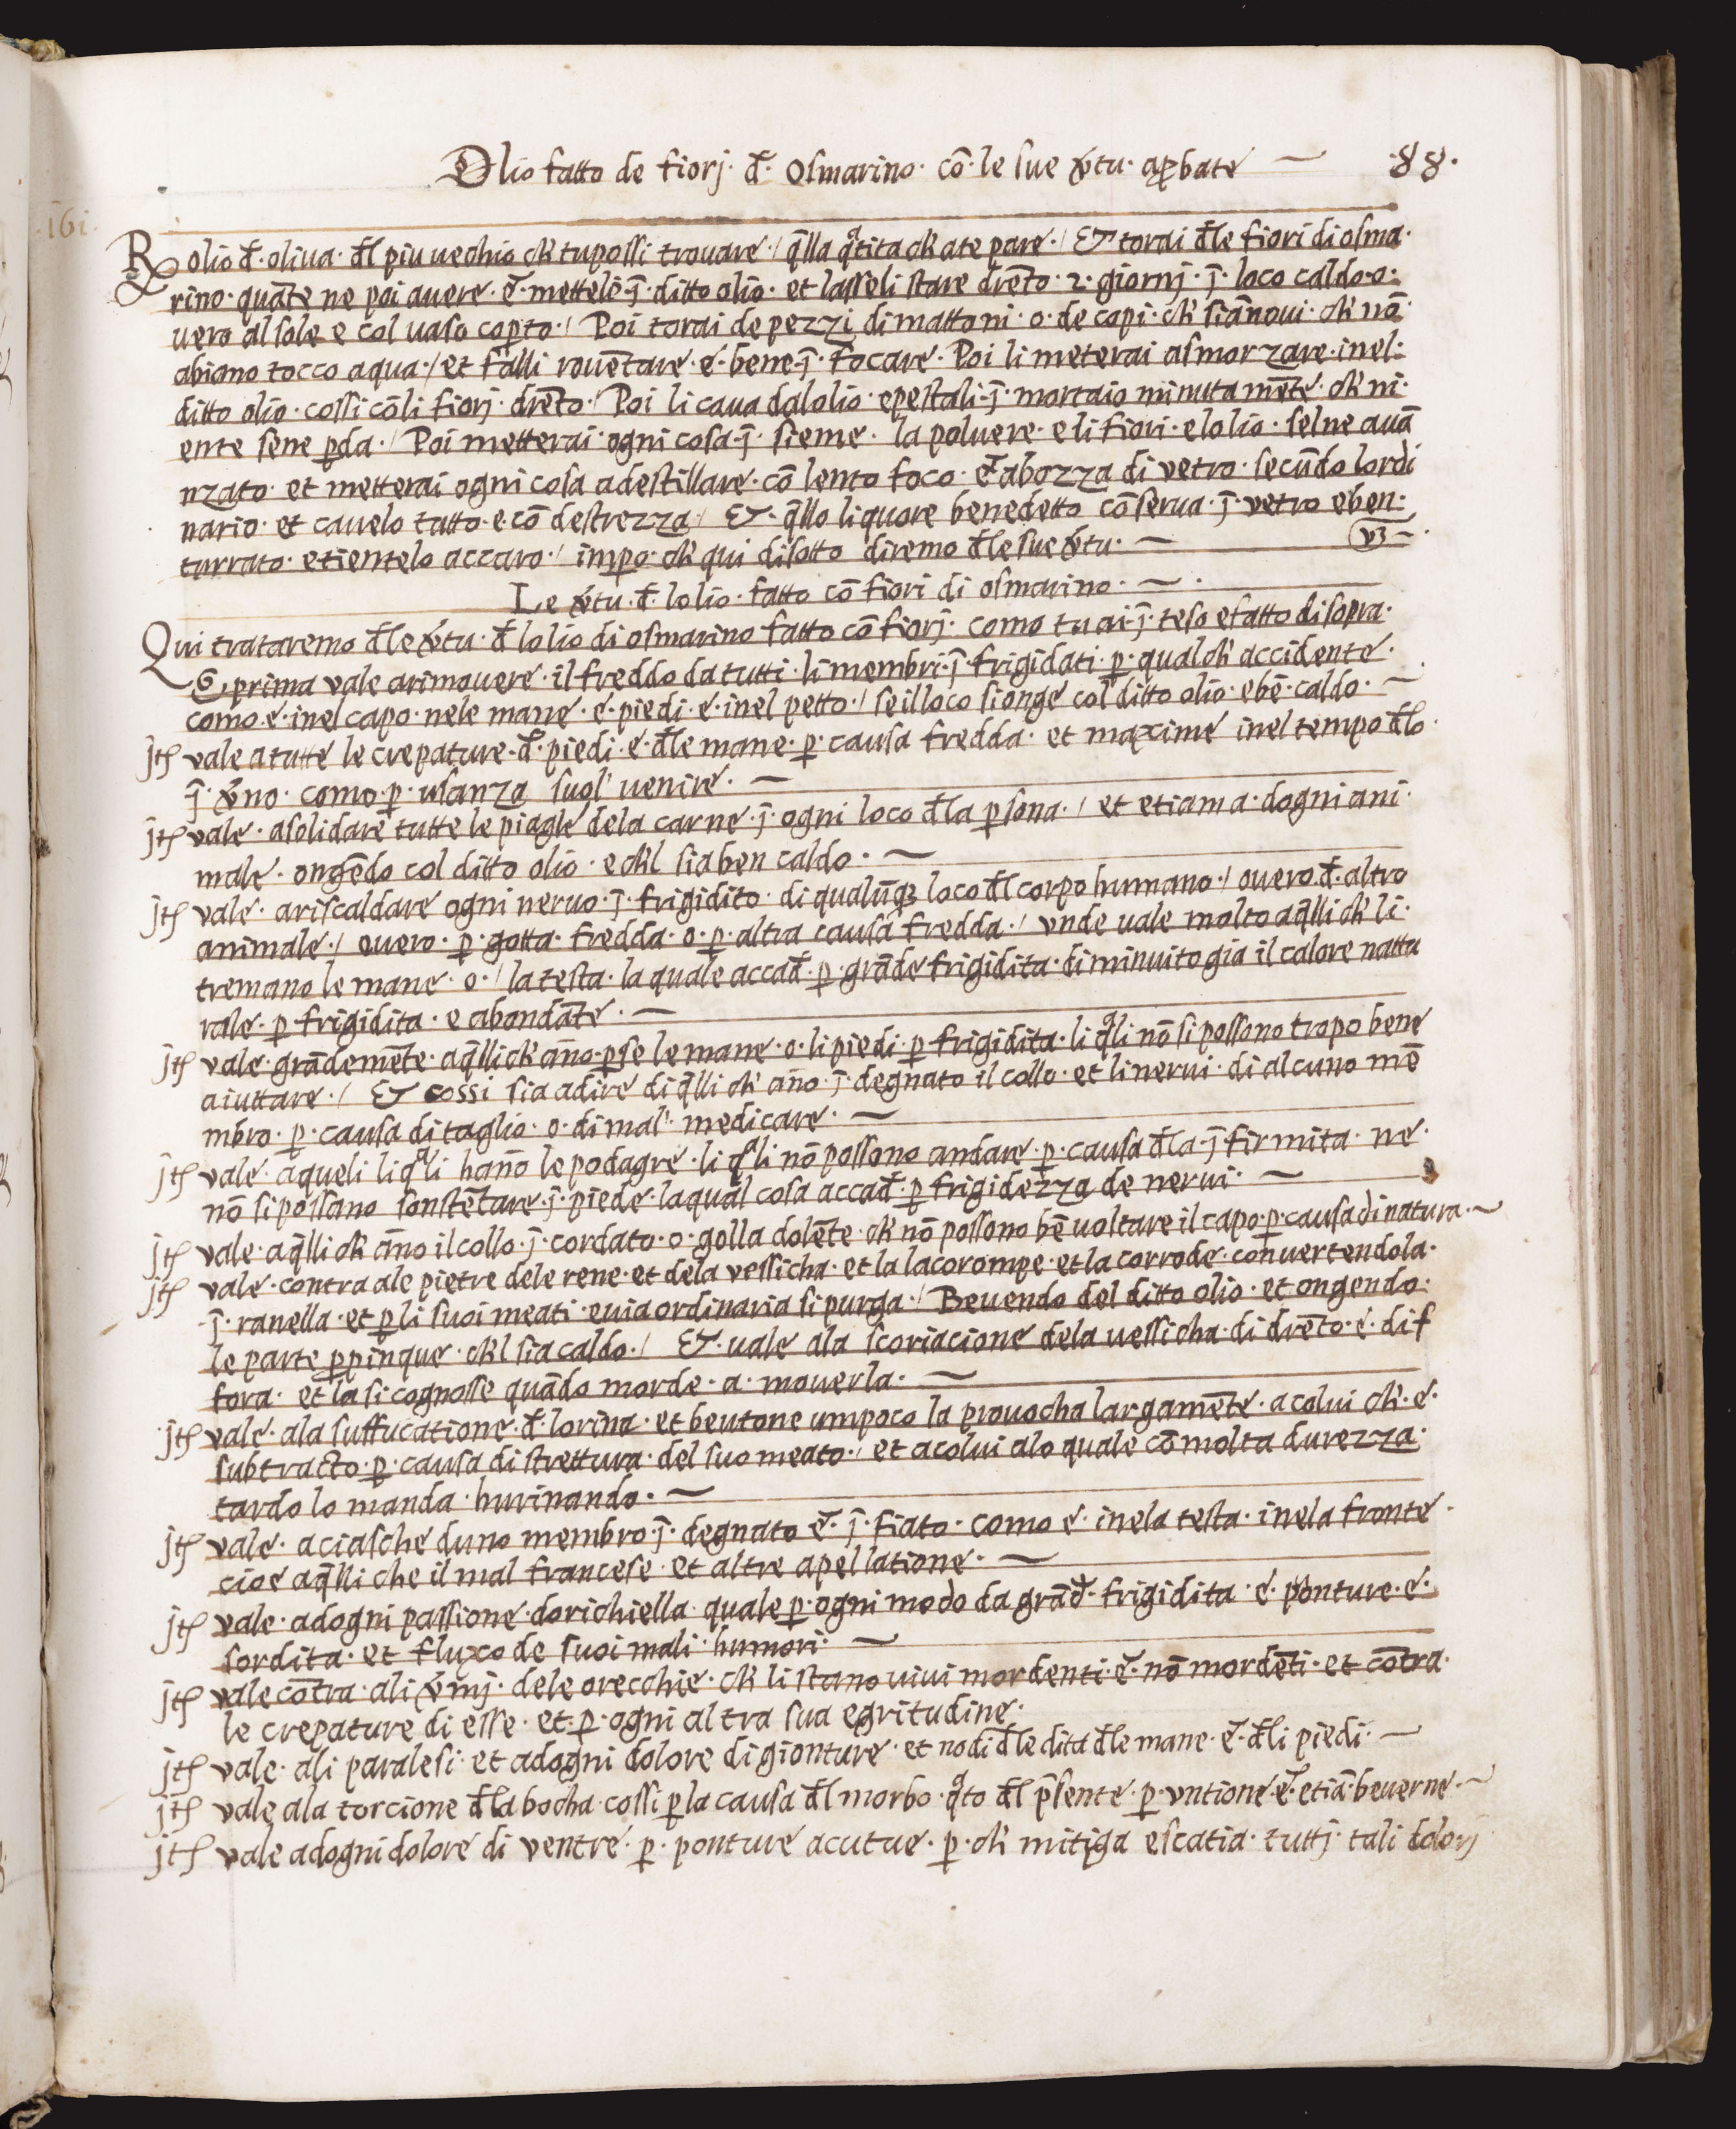 Olio fatto de fiorj· đ· osmarino· cō·le sue v̄tu· aꝓbate — ·88·
·161·
℞ olio đ· oliua· đl piu uechio ch' tu possi trouare·/ q̄lla q̄tita ch' ate pare·/ Et torai đle fiori di osma·
rino· quāte ne poi auere· e· mettelē· j̄· ditto olio· et lasseli stare drēto· 2· giornj· j̄· loco caldo·o·
uero al sole e col uaso coꝑto·/ Poi torai de pezzi di mattoni· o· de copi· ch' siānoui· ch' nō·
abiano tocco aqua·/ et falli rouētare· e· bene·j̄· focare· Poi li meterai asmorzare· inel·
ditto olio· cossi cōli fiorj· drēto· Poi li caua dalolio· epestali·j̄· mortaio minutamēte· ch' ni·
ente sene ꝑda·/ Poi metterai· ogni cosa·j̄· sieme· la poluere· e li fiori· elolio· selne auā
nzato· et metterai ogni cosa adestillare· cō lento foco· e abozza di vetro· secūdo lordi
nario· et cauelo tutto· e cō destrezza/ Et· q̄llo liquore benedetto cōserua· j̄· vetro eben·
turrato· etientelo accaro·/ imꝑo· ch' qui disotto diremo đle sue v̄tu· — v3 —
Le v̄tu· đ· lolio· fatto cō fiori di osmarino· —·
Qui trataremo đle v̄tu· đ lolio di osmarino fatto cō fiorj· como tu ai·j̄· teso efatto disopra·
E, prima vale arimouere· il freddo da tutti· li membri·j̄· frigidati· ꝑ· qualch' accidente·
como· e· inel capo· nele mane· e· piedi· e· inel petto·/ se illoco sionge col ditto olio· ebē· caldo· —
jtʃ vale a tutte le crepature· đ· piedi· e· đle mane· ꝑ· causa fredda· et maxime inel tempo đlo·
j̄· v̄no· como· ꝑ· usanza suol' uenire· —
jtʃ vale· asolidare tutte le piaghe dela carne· j̄· ogni loco đla ꝑsona·/ et etiam a· dogni ani·
male· ongēdo col ditto olio· ech'l sia ben caldo· —
jtʃ vale· ariscaldare ogni neruo· j̄· frigidito· di qualūqꝫ loco đl corpo humano·/ ouero đ· altro
animale·/ ouero· ꝑ· gotta· fredda· o· ꝑ· altra causa fredda·/ vnde uale molto aq̄lli ch' li·
tremano le mane· o·/ la testa· la quale accađ· ꝑ· grāde frigidita· diminuito gia il calore nattu
rale· ꝑ· frigidita· e abondāte· —
jtʃ vale· grādemēte· aq̄lli ch' ano· ꝑse le mane· o· li piedi· ꝑ frigidita· li q̄li nō si possono tropo bene
aiuttare·/ Et cossi sia adire di q̄lli ch' ano· j̄· degnato il collo· et li nerui· di alcuno mē
mbro· ꝑ· causa di taglio· o· di mal'· medicare· —
jtʃ vale· aqueli liq̄li hano le podagre· li q̄li nō possono andare· ꝑ· causa đla·j̄ firmita· ne·
nō si possano sonstētare·j̄· piede· laqual cosa accađ· ꝑ frigidezza de nerui· —
jtʃ vale· aq̄lli ch' āno il collo·j̄· cordato· o· golla dolēte· ch' nō possono bē uoltare il capo· ꝑ· causa di natura· ~
jtʃ vale· contra ale pietre dele rene· et dela vessicha· et la lacorompe· et la corrode· conuertendola·
j̄· ranella· et ꝑ li suoi meati· euia ordinaria si purga·/ Beuendo del ditto olio· et ongendo·
le parte ꝓpinque· ch'l sia caldo·/ Et· uale ala scoriacione dela uessicha· di drēto· e· dif
fora· et la si cognosse quādo morde· a· mouerla· —
jtʃ vale· ala suffucatione· đ· lorina· et beutone umpoco la prouocha largamēte· a colui ch'· e·
subtracto· ꝑ· causa di strettura· del suo meato·/ et acolui alo quale cō molta durezza·
tardo lo manda· hurinando· —
jtʃ vale· a ciasche duno membro·j̄· degnato e· j̄· fiato· como e· inela testa· inela fronte·
cioe aq̄lli che il mal francese· et altre apellatione· —
jtʃ vale· adogni passione· dorichiella quale ꝑ· ogni modo da grāđ· frigidita· e· ponture· e·
sordita· et fluxo de suoi mali· humori· —
jtʃ vale cōtra· ali v̄mj· dele orecchie· ch' li stano uiui mordenti· e· nō mordēti· et cōtra·
le crepature di esse· et· ꝑ· ogni altra sua egritudine·
jtʃ vale· ali paralesi· et adogni dolore di gionture· et nodi đle dita đle mane· e· đli piedi· —
jtʃ vale ala torcione đla bocha· cossi ꝑ la causa đl morbo· q̄to đl p̄sente· ꝑ· vntione· e· etiā· beuerne· ~
jtʃ vale adogni dolore di ventre· ꝑ· ponture acutue· ꝑ· ch' mitiga escatia· tuttj· tali dolorj